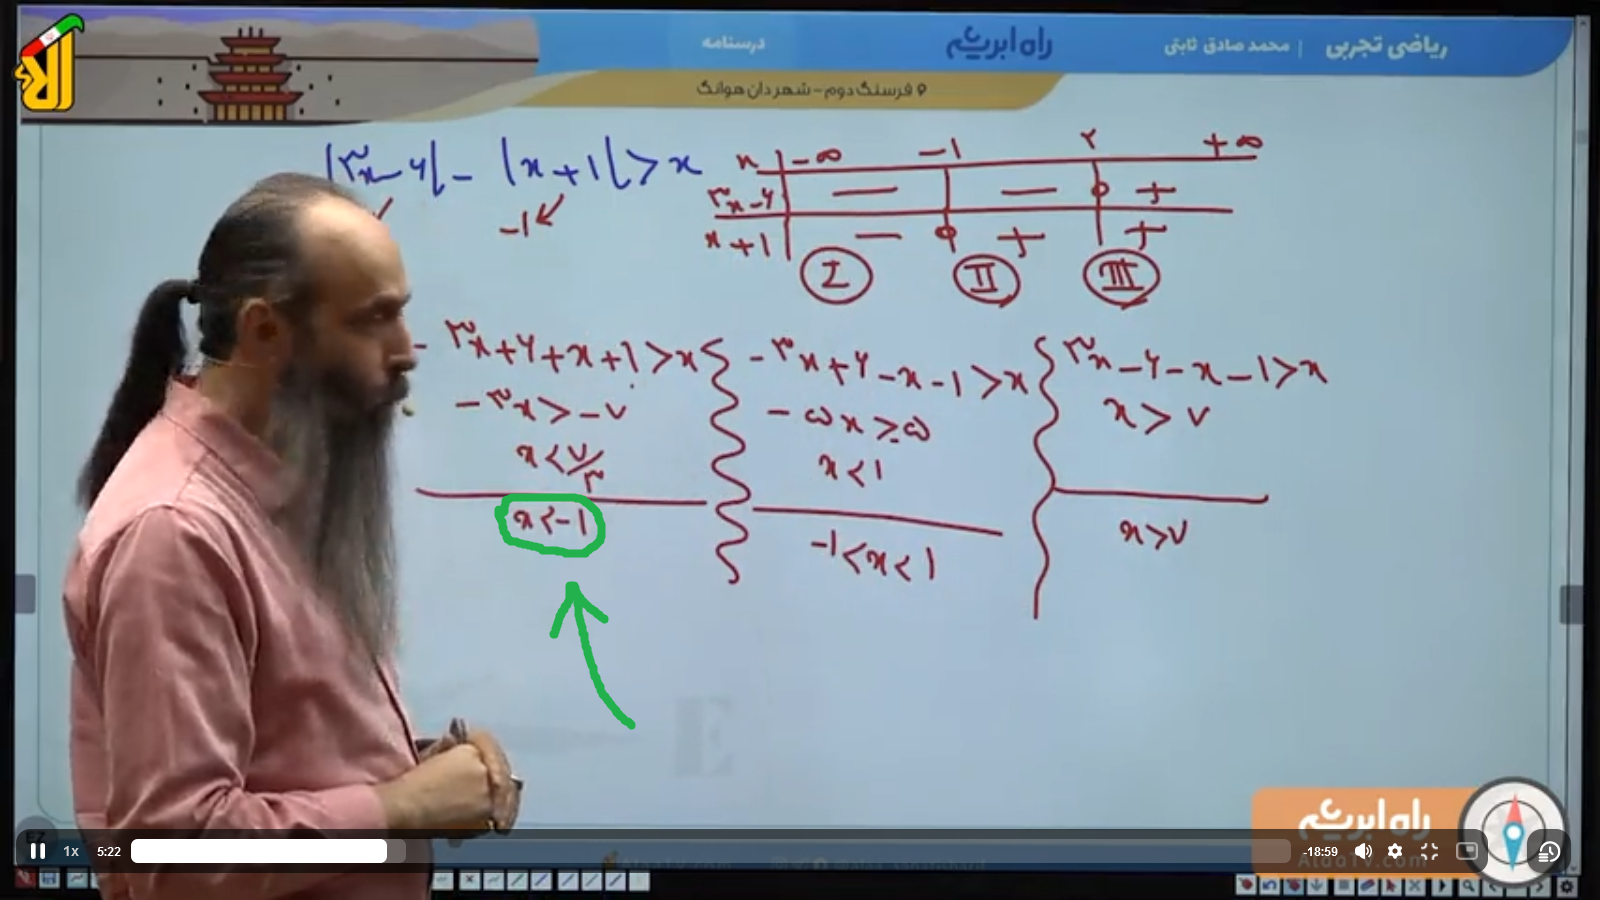 ریاضی تجربی | محمد صادق ثابتی
راه ابریشم
درسنامه
فرسنگ دوم - شهر دان هوانگ
|۳x-۶| - |x+1| > x
-1
x -∞ -1 ۲ +∞
۳x-۶ - - 0 +
x+1 - 0 + +
I II III
-۳x+۶+x+1>x
-۳x>-۷
x<۷/۳
x<-1
-۳x+۶-x-1>x
-۵x>-۵
x<1
-1<x<1
۳x-۶-x-1>x
x>۷
x>۷
راه ابریشم
1x 5:22 -18:59